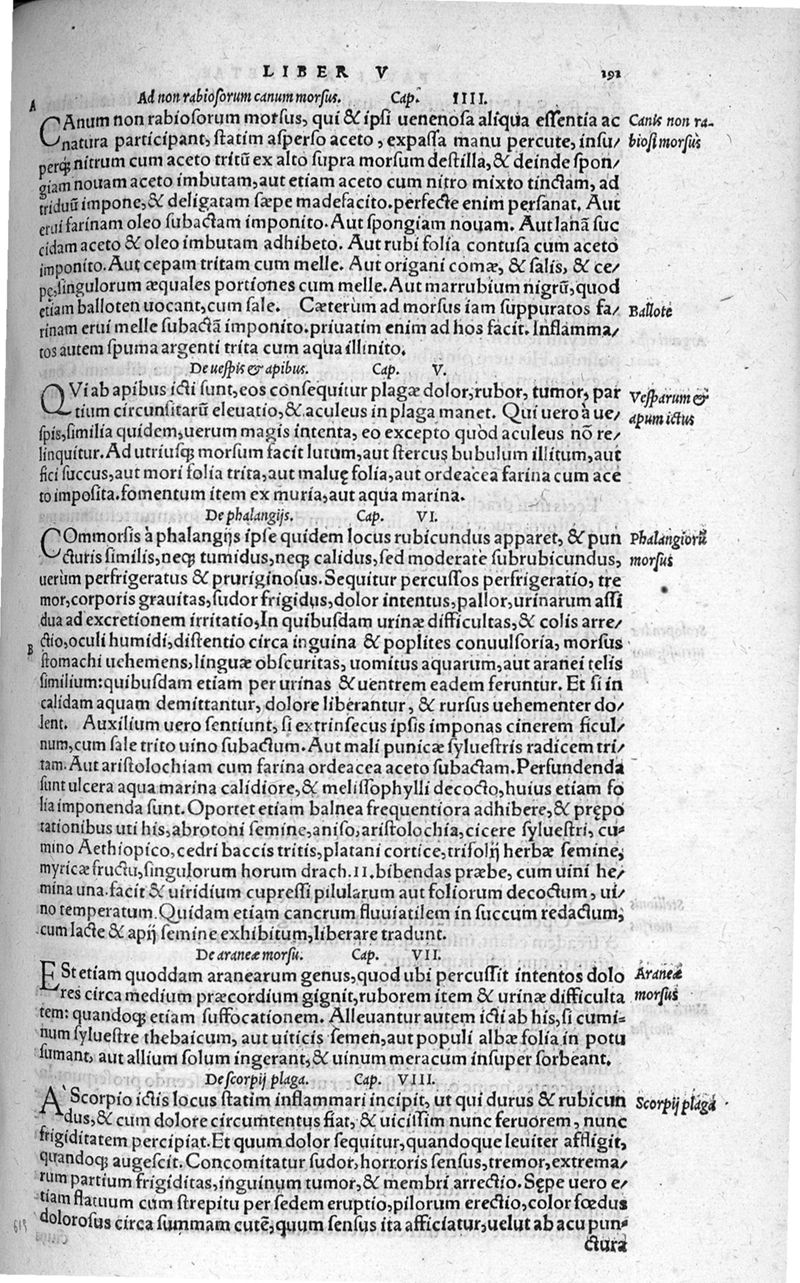 LIBER V 191
Ad non rabiosorum canum morsus. Cap. IIII.
A
CAnum non rabiosorum morsus, qui & ipsi uenenosa aliqua essentia ac
natura participant, statim asperso aceto, expassa manu percute, insu/
perq; nitrum cum aceto tritū ex alto supra morsum destilla, & deinde spon/
giam nouam aceto imbutam, aut etiam aceto cum nitro mixto tinctam, ad
triduū impone, & deligatam sæpe madefacito. perfecte enim persanat. Aut
erui farinam oleo subactam imponito. Aut spongiam nouam. Aut lanā suc
cidam aceto & oleo imbutam adhibeto. Aut rubi folia contusa cum aceto
imponito. Aut cepam tritam cum melle. Aut origani comæ, & salis, & ce/
pę, singulorum æquales portiones cum melle. Aut marrubium nigrū, quod
etiam balloten uocant, cum sale. Cæterùm ad morsus iam suppuratos fa/
rinam erui melle subactā imponito. priuatim enim ad hos facit. Inflamma/
tos autem spuma argenti trita cum aqua illinito.
Canis non ra-
biosi morsus
Ballote
De uespis & apibus. Cap. V.
QVi ab apibus icti sunt, eos consequitur plagæ dolor, rubor, tumor, par
tium circunsitarū eleuatio, & aculeus in plaga manet. Qui uero à ue/
spis, similia quidem, uerum magis intenta, eo excepto quòd aculeus nō re/
linquitur. Ad utriusq; morsum facit lutum, aut stercus bubulum illitum, aut
fici succus, aut mori folia trita, aut maluę folia, aut ordeacea farina cum ace
to imposita. fomentum item ex muria, aut aqua marina.
Vesparum &
apum ictus
De phalangijs. Cap. VI.
COmmorsis à phalangijs ipse quidem locus rubicundus apparet, & pun
cturis similis, neq; tumidus, neq; calidus, sed moderate subrubicundus,
uerùm perfrigeratus & pruriginosus. Sequitur percussos perfrigeratio, tre
mor, corporis grauitas, sudor frigidus, dolor intentus, pallor, urinarum assi
dua ad excretionem irritatio, In quibusdam urinæ difficultas, & colis arre/
ctio, oculi humidi, distentio circa inguina & poplites conuulsoria, morsus
B
stomachi uehemens, linguæ obscuritas, uomitus aquarum, aut aranei telis
similium: quibusdam etiam per urinas & uentrem eadem feruntur. Et si in
calidam aquam demittantur, dolore liberantur, & rursus uehementer do/
lent. Auxilium uero sentiunt, si extrinsecus ipsis imponas cinerem ficul/
num, cum sale trito uino subactum. Aut mali punicæ syluestris radicem tri/
tam. Aut aristolochiam cum farina ordeacea aceto subactam. Perfundenda
sunt ulcera aqua marina calidiore, & melissophylli decocto, huius etiam fo
lia imponenda sunt. Oportet etiam balnea frequentiora adhibere, & prępo
tationibus uti his, abrotoni semine, aniso, aristolochia, cicere syluestri, cu-
mino Aethiopico, cedri baccis tritis, platani cortice, trifolij herbæ semine,
myricæ fructu, singulorum horum drach. II. bibendas præbe, cum uini he/
mina una. facit & uiridium cupressi pilularum aut foliorum decoctum, ui/
no temperatum. Quidam etiam cancrum fluuiatilem in succum redactum,
cum lacte & apij semine exhibitum, liberare tradunt.
Phalangiorū
morsus
De araneæ morsu. Cap. VII.
ESt etiam quoddam aranearum genus, quod ubi percussit intentos dolo
res circa medium præcordium gignit, ruborem item & urinæ difficulta
tem: quandoq; etiam suffocationem. Alleuantur autem icti ab his, si cumi-
num syluestre thebaicum, aut uiticis semen, aut populi albæ folia in potu
sumant, aut allium solum ingerant, & uinum meracum insuper sorbeant.
Araneæ
morsus
De scorpij plaga. Cap. VIII.
A Scorpio ictis locus statim inflammari incipit, ut qui durus & rubicun
dus, & cum dolore circumtentus fiat, & uicissim nunc feruorem, nunc
frigiditatem percipiat. Et quum dolor sequitur, quandoque leuiter affligit,
quandoq; augescit. Concomitatur sudor, horroris sensus, tremor, extrema/
rum partium frigiditas, inguinum tumor, & membri arrectio. Sępe uero e/
tiam flatuum cum strepitu per sedem eruptio, pilorum erectio, color fœdus
dolorosus circa summam cutē, quum sensus ita afficiatur, uelut ab acu pun-
ctura
Scorpij plaga